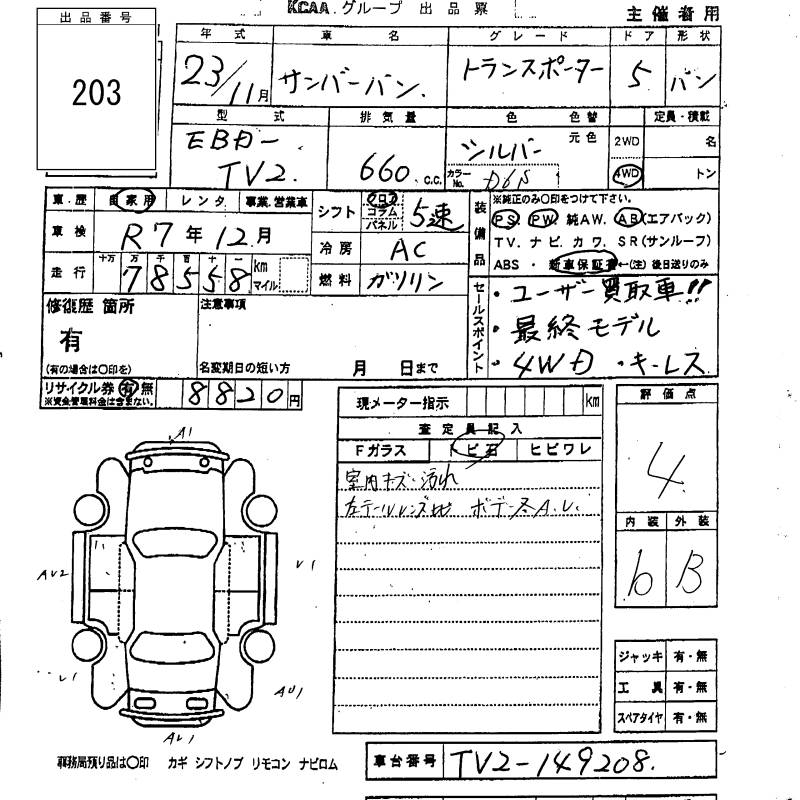 KCAA グループ 出品票
主催者用
出品番号
203
年式 車名 グレード ドア 形状
23/11月 サンバーバン. トランスポーター 5 バン
型式 排気量 色 色替 定員・積載
元色 2WD 名
EBD- TV2. 660 c.c. シルバー カラーNo. D6S 4WD トン
車・歴 自家用 レンタ 事業.営業車
車検 R7年12月
走行 十万 万 千 百 十 一
78558 km マイル
シフト フロア コラム パネル 5速
冷房 AC
燃料 ガソリン
装備品
※純正のみ〇印をつけて下さい。
PS PW. 純AW. AB(エアバック)
TV. ナビ. カワ. SR(サンルーフ)
ABS ・ 新車保証書←(注) 後日送りのみ
修復歴 箇所
有
(有の場合は〇印を)
注意事項
名変期日の短い方 月 日まで
セールスポイント
・ユーザー買取車!!
・最終モデル
・4WD ・キーレス
リサイクル券 有 無
※資金管理料金は含まない。
8820円
現メーター指示 km
査定員記入
Fガラス トビ石 ヒビワレ
室内キズ・汚れ
左テールレンズヒビ ボデー各A.U.
評価点
4
内装 外装
b B
A1
AU2
U1
U1
AU1
AU1
ジャッキ 有・無
工具 有・無
スペアタイヤ 有・無
事務局預り品は〇印 カギ シフトノブ リモコン ナビロム
車台番号 TV2-149208.